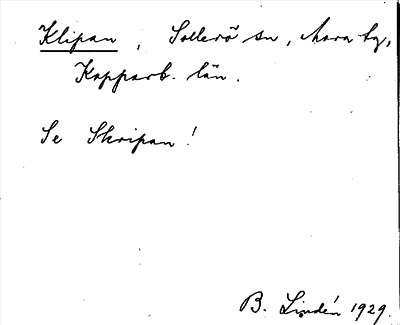 Klipan, Sollerö sn, Mora tg,
Kopparb. län.
Se Skripan!
B. Lindén 1929.